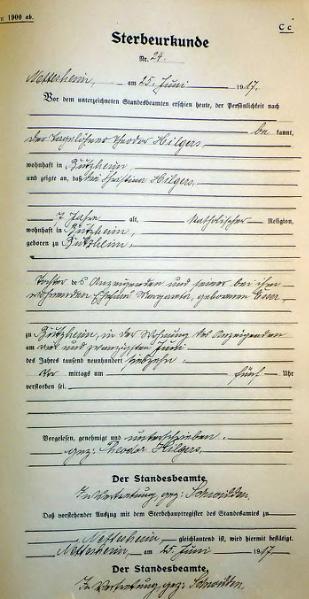 1900 ab.
C c
Sterbeurkunde
Nr. 24.
Nettersheim, am 25. Juni 1917.
Vor dem unterzeichneten Standesbeamten erschien heute, der Persönlichkeit nach
be kannt,
der Tagelöhner Theodor Hilgers
wohnhaft in
und zeigte an, daß Christina Hilgers,
7 Jahre alt, katholischer Religion,
wohnhaft in
geboren zu
Tochter des Anzeigenden und seiner bei ihm
Ehefrau Margareta, geborenen
zu in der Wohnung des Anzeigenden
am und zwanzigsten Juni
des Jahres tausend neunhundert siebzehn
Vor mittags um fünf Uhr
verstorben sei.
Vorgelesen, genehmigt und unterschrieben.
gez: Theodor Hilgers.
Der Standesbeamte,
In Vertretung, gez:
Daß vorstehender Auszug mit dem Sterbehauptregister des Standesamts zu
Nettersheim gleichlautend ist, wird hiermit bestätigt.
Nettersheim, am 25. Juni 1917
Der Standesbeamte,
In Vertretung, gez: